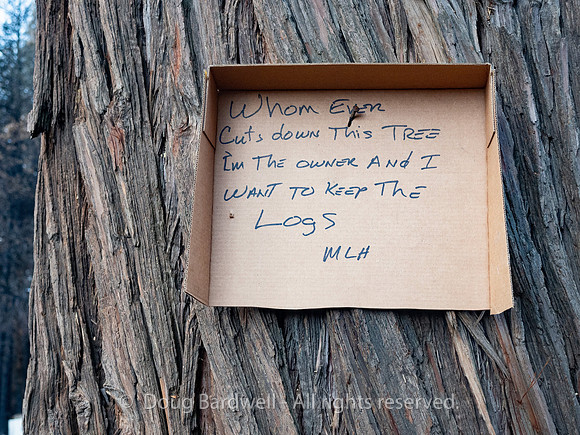 Whom Ever
Cuts down This TREE
I'm THE OWNER AND I
WANT TO KEEP THE
LOGS
MLH
© Doug Bardwell - All rights reserved.